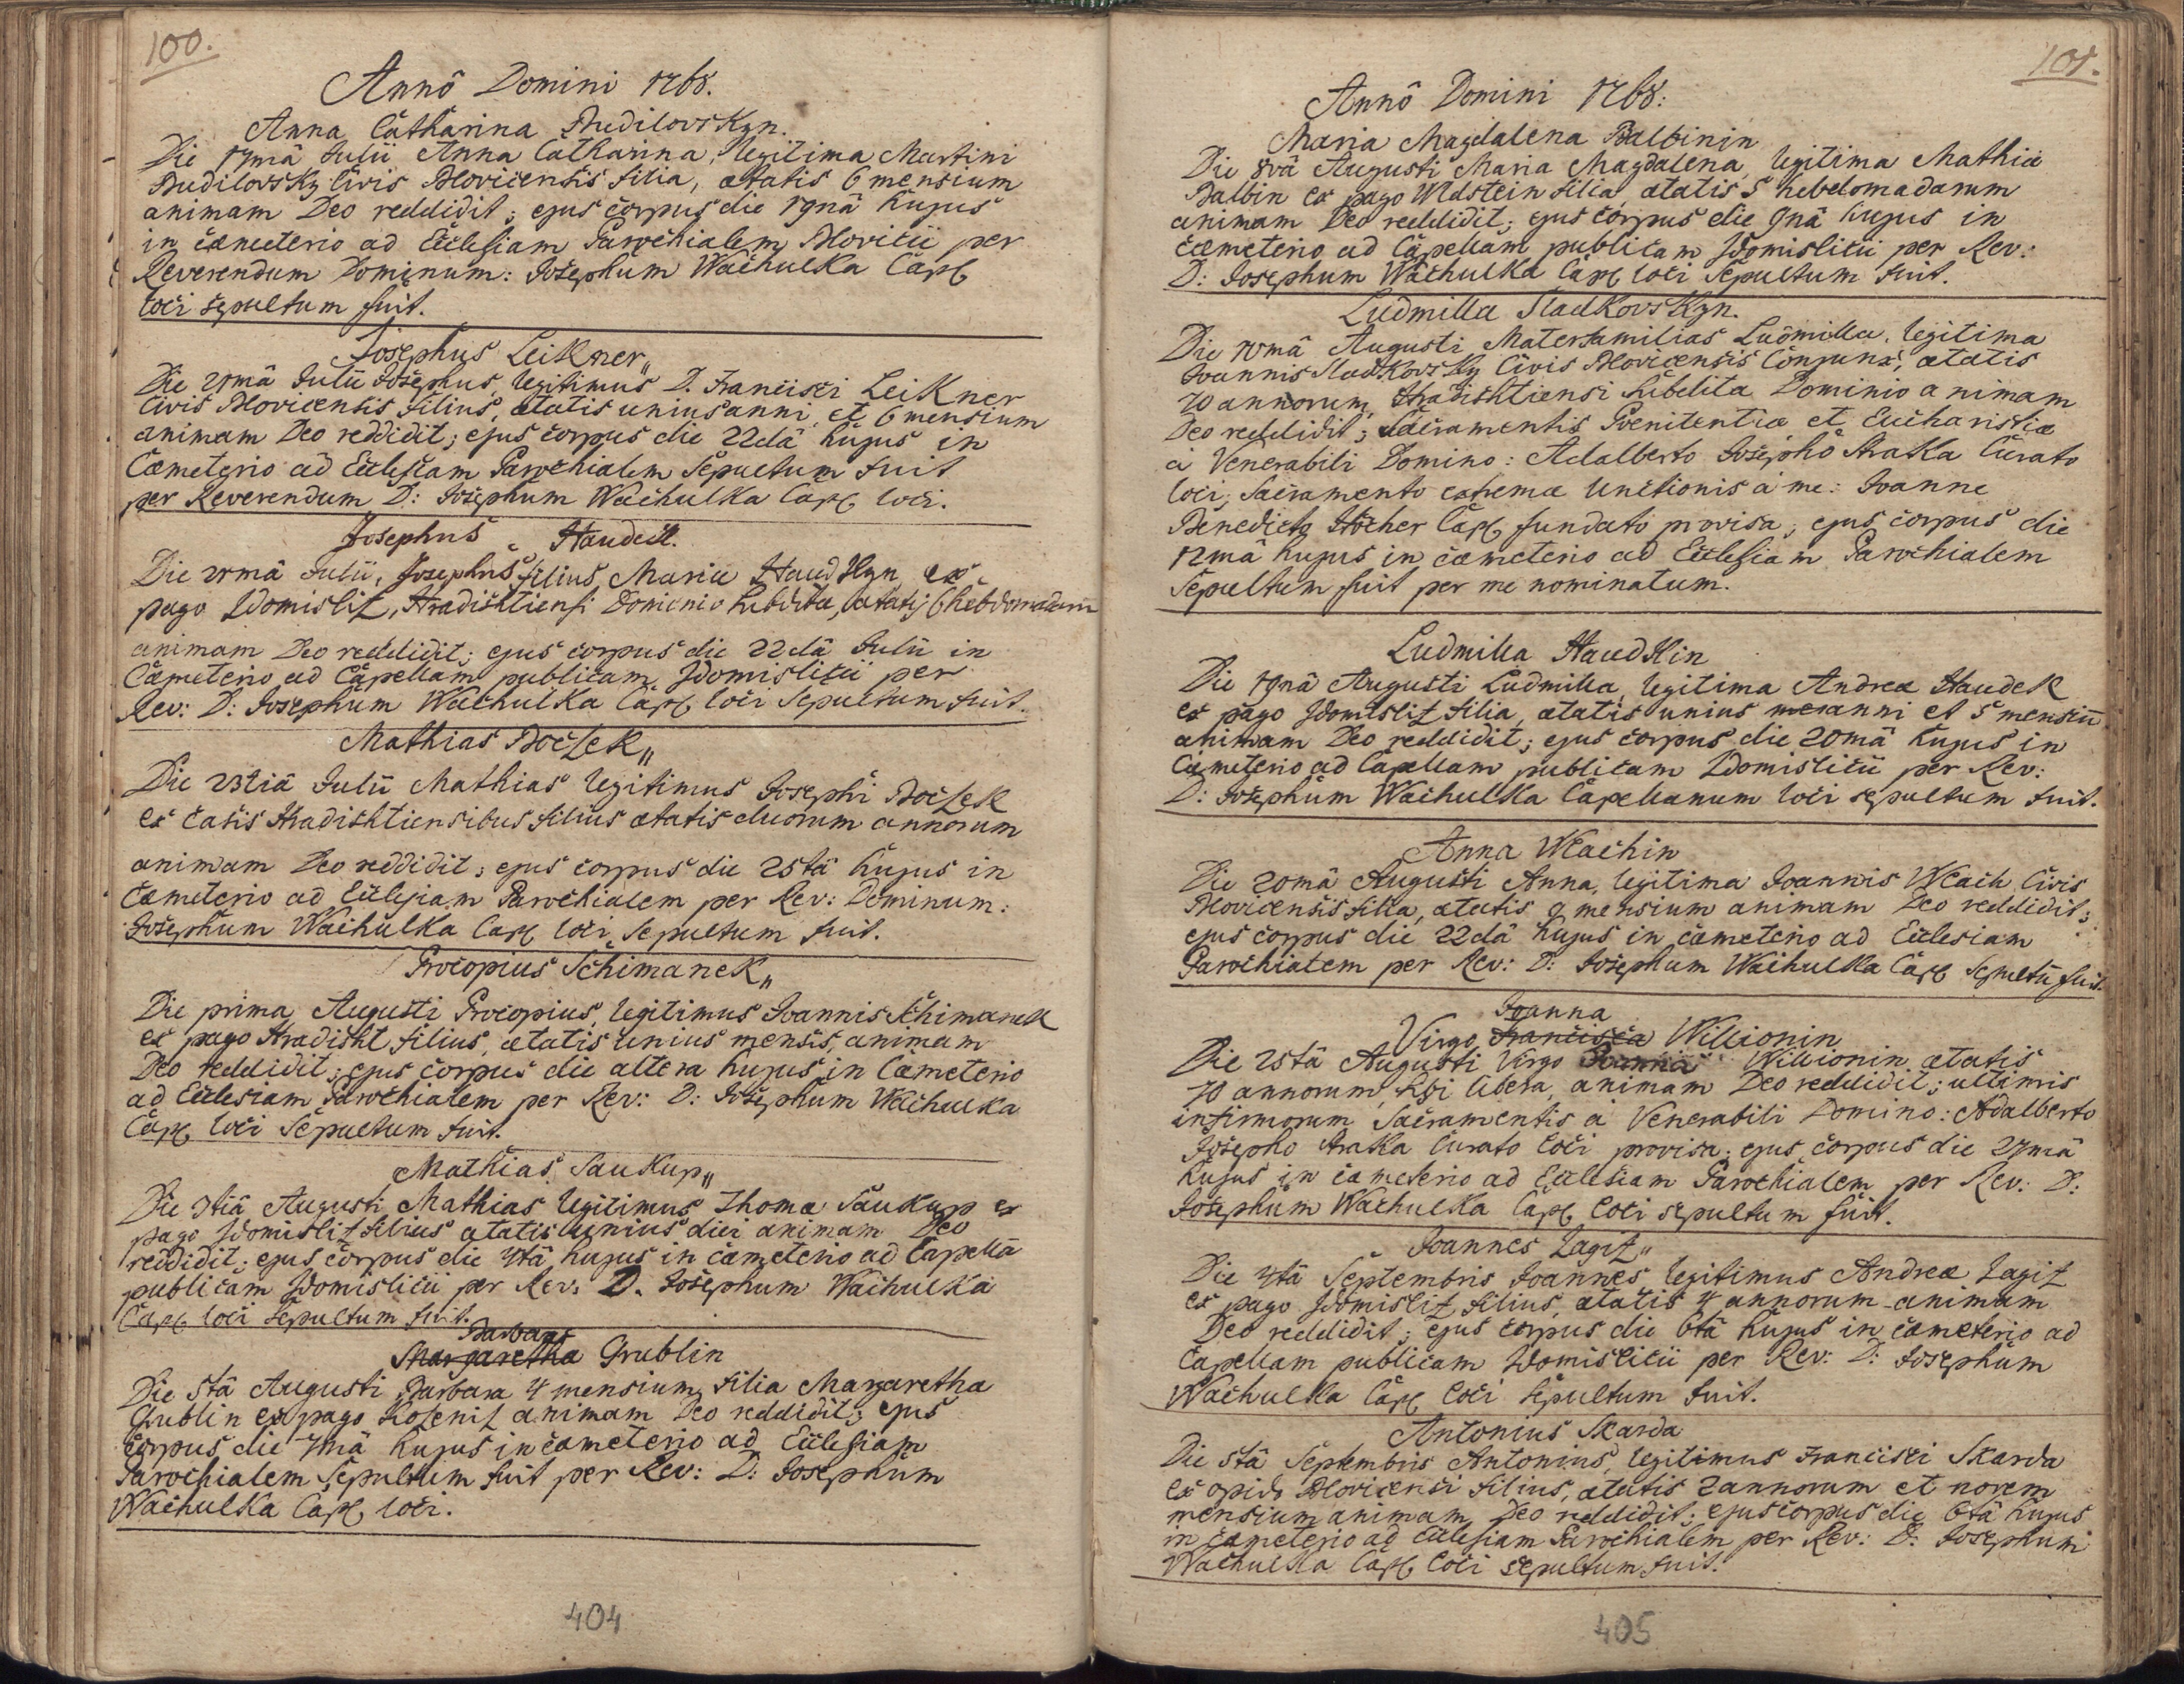 100.
Annô Domini 1768.
Anna Catharina Budilovskyn.
Die 17mâ Julii Anna Catharina, legitima Martini
Budilovsky Civis Blovicensis filia, ætatis 6 mensium
animam Deo reddidit; ejus corpus die 19nâ hujus
in cæmeterio ad Ecclesiam Parochialem Blovicii per
Reverendum Dominum: Josephum Wachulka Capl
loci sepultum fuit.
Josephus Leikner„
Die 21mâ Julii Josephus, legitimus D. Francisci Leikner
Civis Blovicensis filius, ætatis unius anni et 6 mensium
animam Deo reddidit; ejus corpus die 22dâ hujus in
Cæmeterio ad Ecclesiam Parochialem Sepultum fuit
per Reverendum D: Josephum Wachulka Capl loci.
Josephus Haudek.
Die 21mâ Julii, Josephus filius Mariæ Haudkyn ex
pago Zdomislitz, Hradishtiensi Dominio subdita, ætatis 6 hebdomadum
animam Deo reddidit; ejus corpus die 22dâ Julii in
Cæmeterio ad Capellam publicam Zdomislicii per
Rev: D: Josephum Wachulka Capl loci Sepultum fuit.
Mathias Boczek„
Die 23tiâ Julii Mathias legitimus Josephi Boczek
ex casis Hradishtiensibus filius ætatis duorum annorum
animam Deo reddidit; ejus corpus die 25tâ hujus in
Cæmeterio ad Ecclesiam Parochialem per Rev: Dominum:
Josephum Wachulka Capl loci Sepultum fuit.
Procopius Schimanek„
Die prima Augusti Procopius, legitimus Joannis Schimanek
ex pago Hradisht filius, ætatis unius mensis, animam
Deo reddidit; ejus corpus die altera hujus in Cæmeterio
ad Ecclesiam Parochialem per Rev: D: Josephum Wachulka
Capl loci Sepultum fuit.
Mathias Saukup„
Die 3tiâ Augusti Mathias legitimus Thomæ Saukup ex
pago Zdomislitz filius ætatis unius diei animam Deo
reddidit; ejus corpus die 4tâ hujus in cæmeterio ad Capellã
publicam Zdomislicii per Rev: D. Josephum Wachulka
Capl loci Sepultum fuit.
Barbara
Margaretha Grublin
Die 5tâ Augusti Barbara 4 mensium filia Margaretha
Grublin ex pago Kotzenitz animam Deo reddidit; ejus
corpus die 7mâ hujus in cæmeterio ad Ecclesiam
Parochialem Sepultum fuit per Rev: D: Josephum
Wachulka Capl loci.
404
101.
Annô Domini 1768:
Maria Magdalena Balbinin
Die 8vâ Augusti Maria Magdalena, legitima Mathiæ
Balbin ex pago Wldstein filia, ætatis 5 hebdomadarum
animam Deo reddidit; ejus corpus die 9nâ hujus in
Cæmeterio ad Capellam publicam Zdomislicii per Rev:
D: Josephum Wachulka Capl loci Sepultum fuit.
Ludmilla Sladkovskyn.
Die 10mâ Augusti Materfamilias Ludmilla, legitima
Joannis Sladkovsky Civis Blovicensis Conjunx, ætatis
70 annorum, Hradishtiensi Subdita Dominio animam
Deo reddidit; Sacramentis Pœnitentiæ et Eucharistiæ
à Venerabili Domino: Adalberto Josephô Straka Curato
loci, Sacramento extremæ Unctionis à me: Joanne
Benedicto Stocher Capl fundato provisa; ejus corpus die
12mâ hujus in cæmeterio ad Ecclesiam Parochialem
Sepultum fuit per me nominatum.
Ludmilla Haudkin
Die 19nâ Augusti Ludmilla, legitima Andreæ Haudek
ex pago Zdomislitz filia, ætatis unius anni et 5 mensiũ
animam Deo reddidit; ejus corpus die 20mâ hujus in
Cæmeterio ad Capellam publicam Zdomislicii per Rev:
D: Josephum Wachulka Capellanum loci sepultum fuit.
Anna Wlachin
Die 20mâ Augusti Anna, legitima Joannis Wlach Civis
Blovicensis filia, ætatis 9 mensium animam Deo reddidit;
ejus corpus die 22dâ hujus in cæmeterio ad Ecclesiam
Parochialem per Rev: D: Josephum Wachulka Capl Sepultũ fuit.
Joanna
Virgo Francisca Willionin
Die 25tâ Augusti Virgo Joanna Willionin ætatis
70 annorum, Sibi libera, animam Deo reddidit; ultimis
infirmorum Sacramentis à Venerabili Domino: Adalberto
Josepho Straka Curato loci provisa; ejus corpus die 27mâ
hujus in cæmeterio ad Ecclesiam Parochialem per Rev: D:
Josephum Wachulka Capl loci sepultum fuit.
Joannes Zagitz„
Die 4tâ Septembris Joannes, legitimus Andreæ Zagitz
ex pago Zdomislitz filius, ætatis 4 annorum animam
Deo reddidit; ejus corpus die 6tâ hujus in cæmeterio ad
Capellam publicam Zdomislicii per Rev: D: Josephum
Wachulka Capl loci Sepultum fuit.
Antonius Skarda
Die 5tâ Septembris Antonius, legitimus Francisci Skarda
ex opido Blovicensi filius, ætatis 2 annorum et novem
mensium animam Deo reddidit; ejus corpus die 6tâ hujus
in cæmeterio ad Ecclesiam Parochialem per Rev: D: Josephum
Wachulka Capl loci sepultum fuit.
405